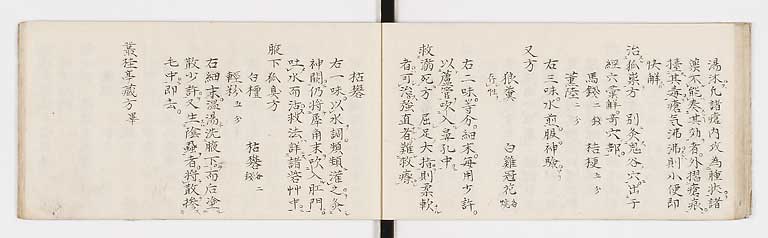 湯沐凡諸瘡内攻為腫米諸
藥不能奏其効者外摺瘡痕
擡其毒瘡氣沸沸則小便即
快解
治狐祟方 別灸鬼谷穴出于
經穴彙解奇穴部
馬錢 二錢 桔梗 五分
董陸 二分
右三味水煎服神驗
又方
狼糞 白雞冠花
右二味等分細末每用少許
以蘆管吹入鼻孔中
救溺死方 屈足大指則柔軟
者可治強直者難救療
枯礬
右一味以水調頻頻灌之灸
神闕仍將犀角末吹入肛門
吐水而活救法詳諸砦艸中
腋下狐臭方
白檀 枯礬 各二錢
輕粉 五分
右細末溫湯洗腋下而后塗
散少許又生陰蝨者將散摻
毛中即去
叢桂亭藏方畢